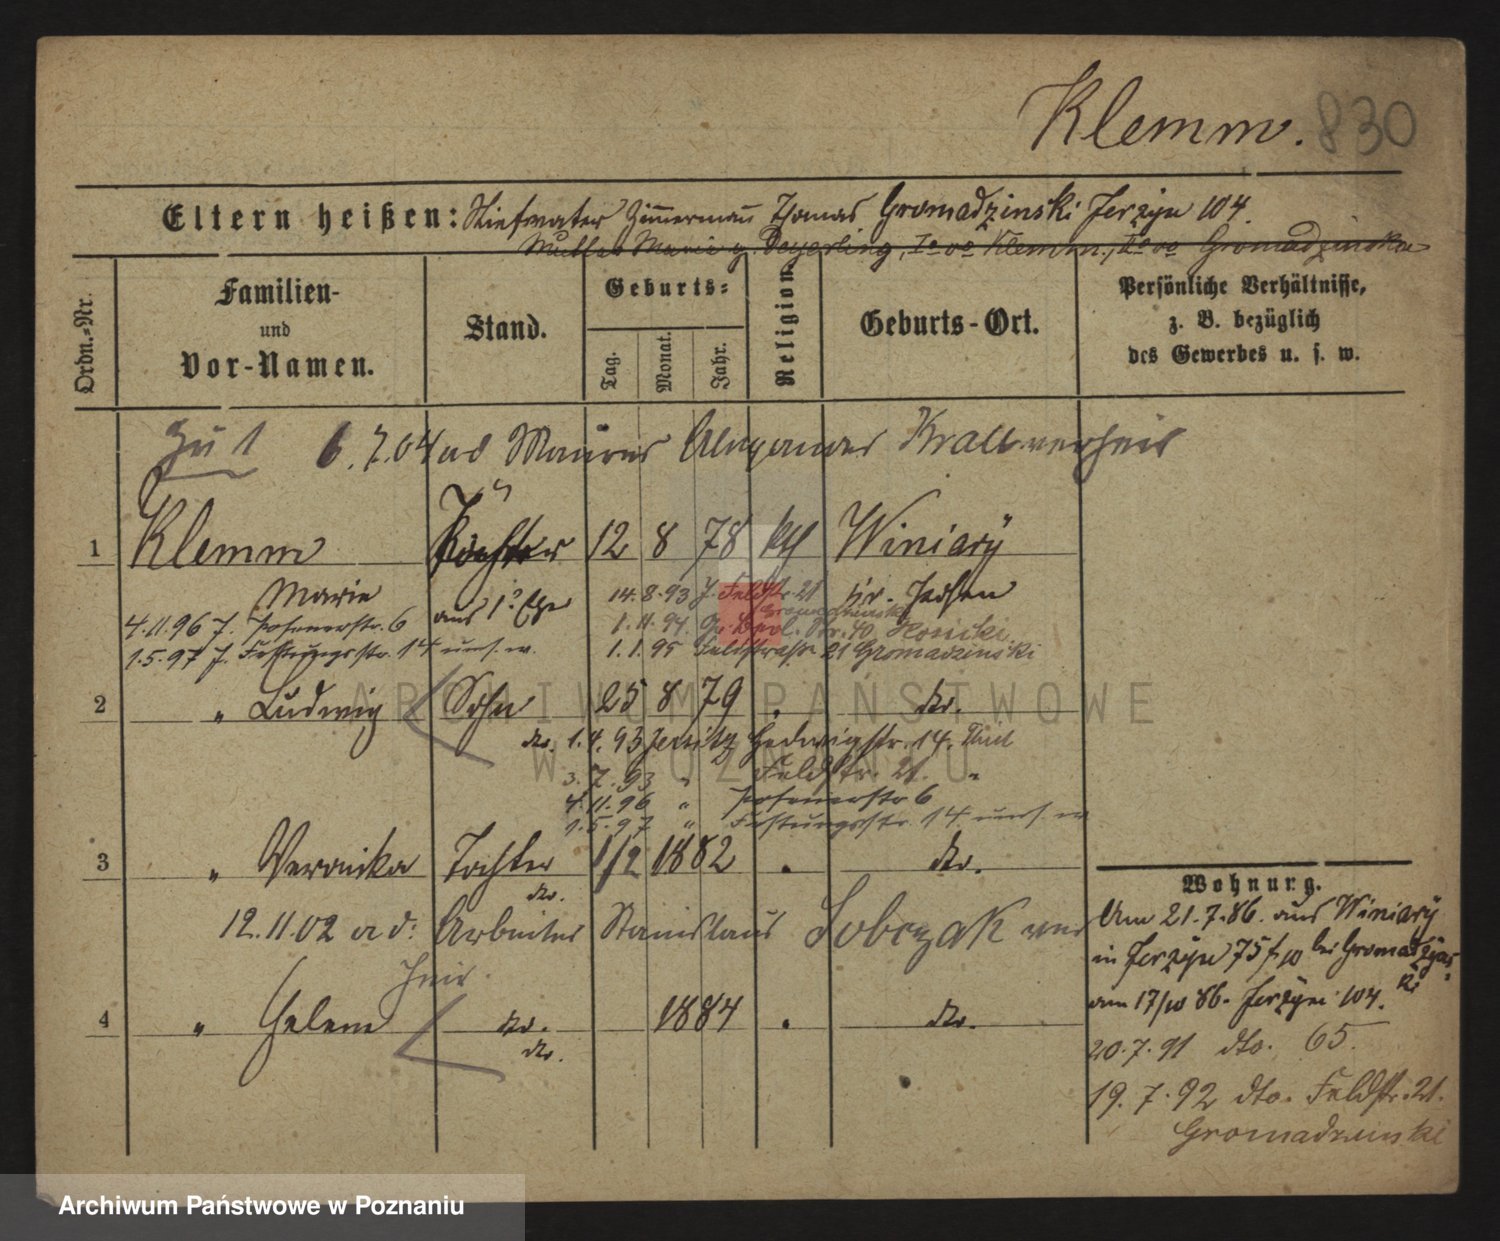 Klemm. 830
Eltern heißen: Stiefvater Zimmermann Thomas Gromadzinski Jerzyce 104.
Mutter Marie g. Beyerling, Io vo Klemm, IIo vo Gromadzinska
Ordn.-Nr.
Familien-
und
Vor-Namen.
Stand.
Geburts-
Tag.
Monat.
Jahr.
Religion
Geburts-Ort.
Persönliche Verhältnisse,
z. B. bezüglich
des Gewerbes u. s. w.
Zu 1 6.7.04 Maurer Krall verheir
1 Klemm 12 8 78 kth Winiary
Marie aus 1? Ehe 14.8.93 J. Feldstr. 21
4.11.96 J. Posenerstr. 6 1.11.94 Gr. Berl. Str. 40
1.5.97 J. Festungsstr. 14 1.1.95 Feldstraße 21 Gromadzinski
2 " Ludwig Sohn 25 8 79 " do.
do. 1.4.93 Jersitz Hedwigstr. 14.
3.7.93 " Feldstr. 21. "
4.11.96 " Posenerstr 6
1.5.97 " Festungsstr. 14
3 " Veronika Tochter 1/2 1882 " do.
do.
12.11.02 a d: Arbeiter Stanislaus Sobczak ver
heir.
4 " Helene do. 1884 " do.
do.
Wohnung.
Am 21.7.86. aus Winiary
in Jerzyce 75 bei Gromadzins-
ki
am 17/10 86. Jerzyce 104.
20.7.91 dto. 65.
19.7.92 dto. Feldstr. 21.
Gromadzinski
ARCHIWUM PAŃSTWOWE
W POZNANIU
Archiwum Państwowe w Poznaniu